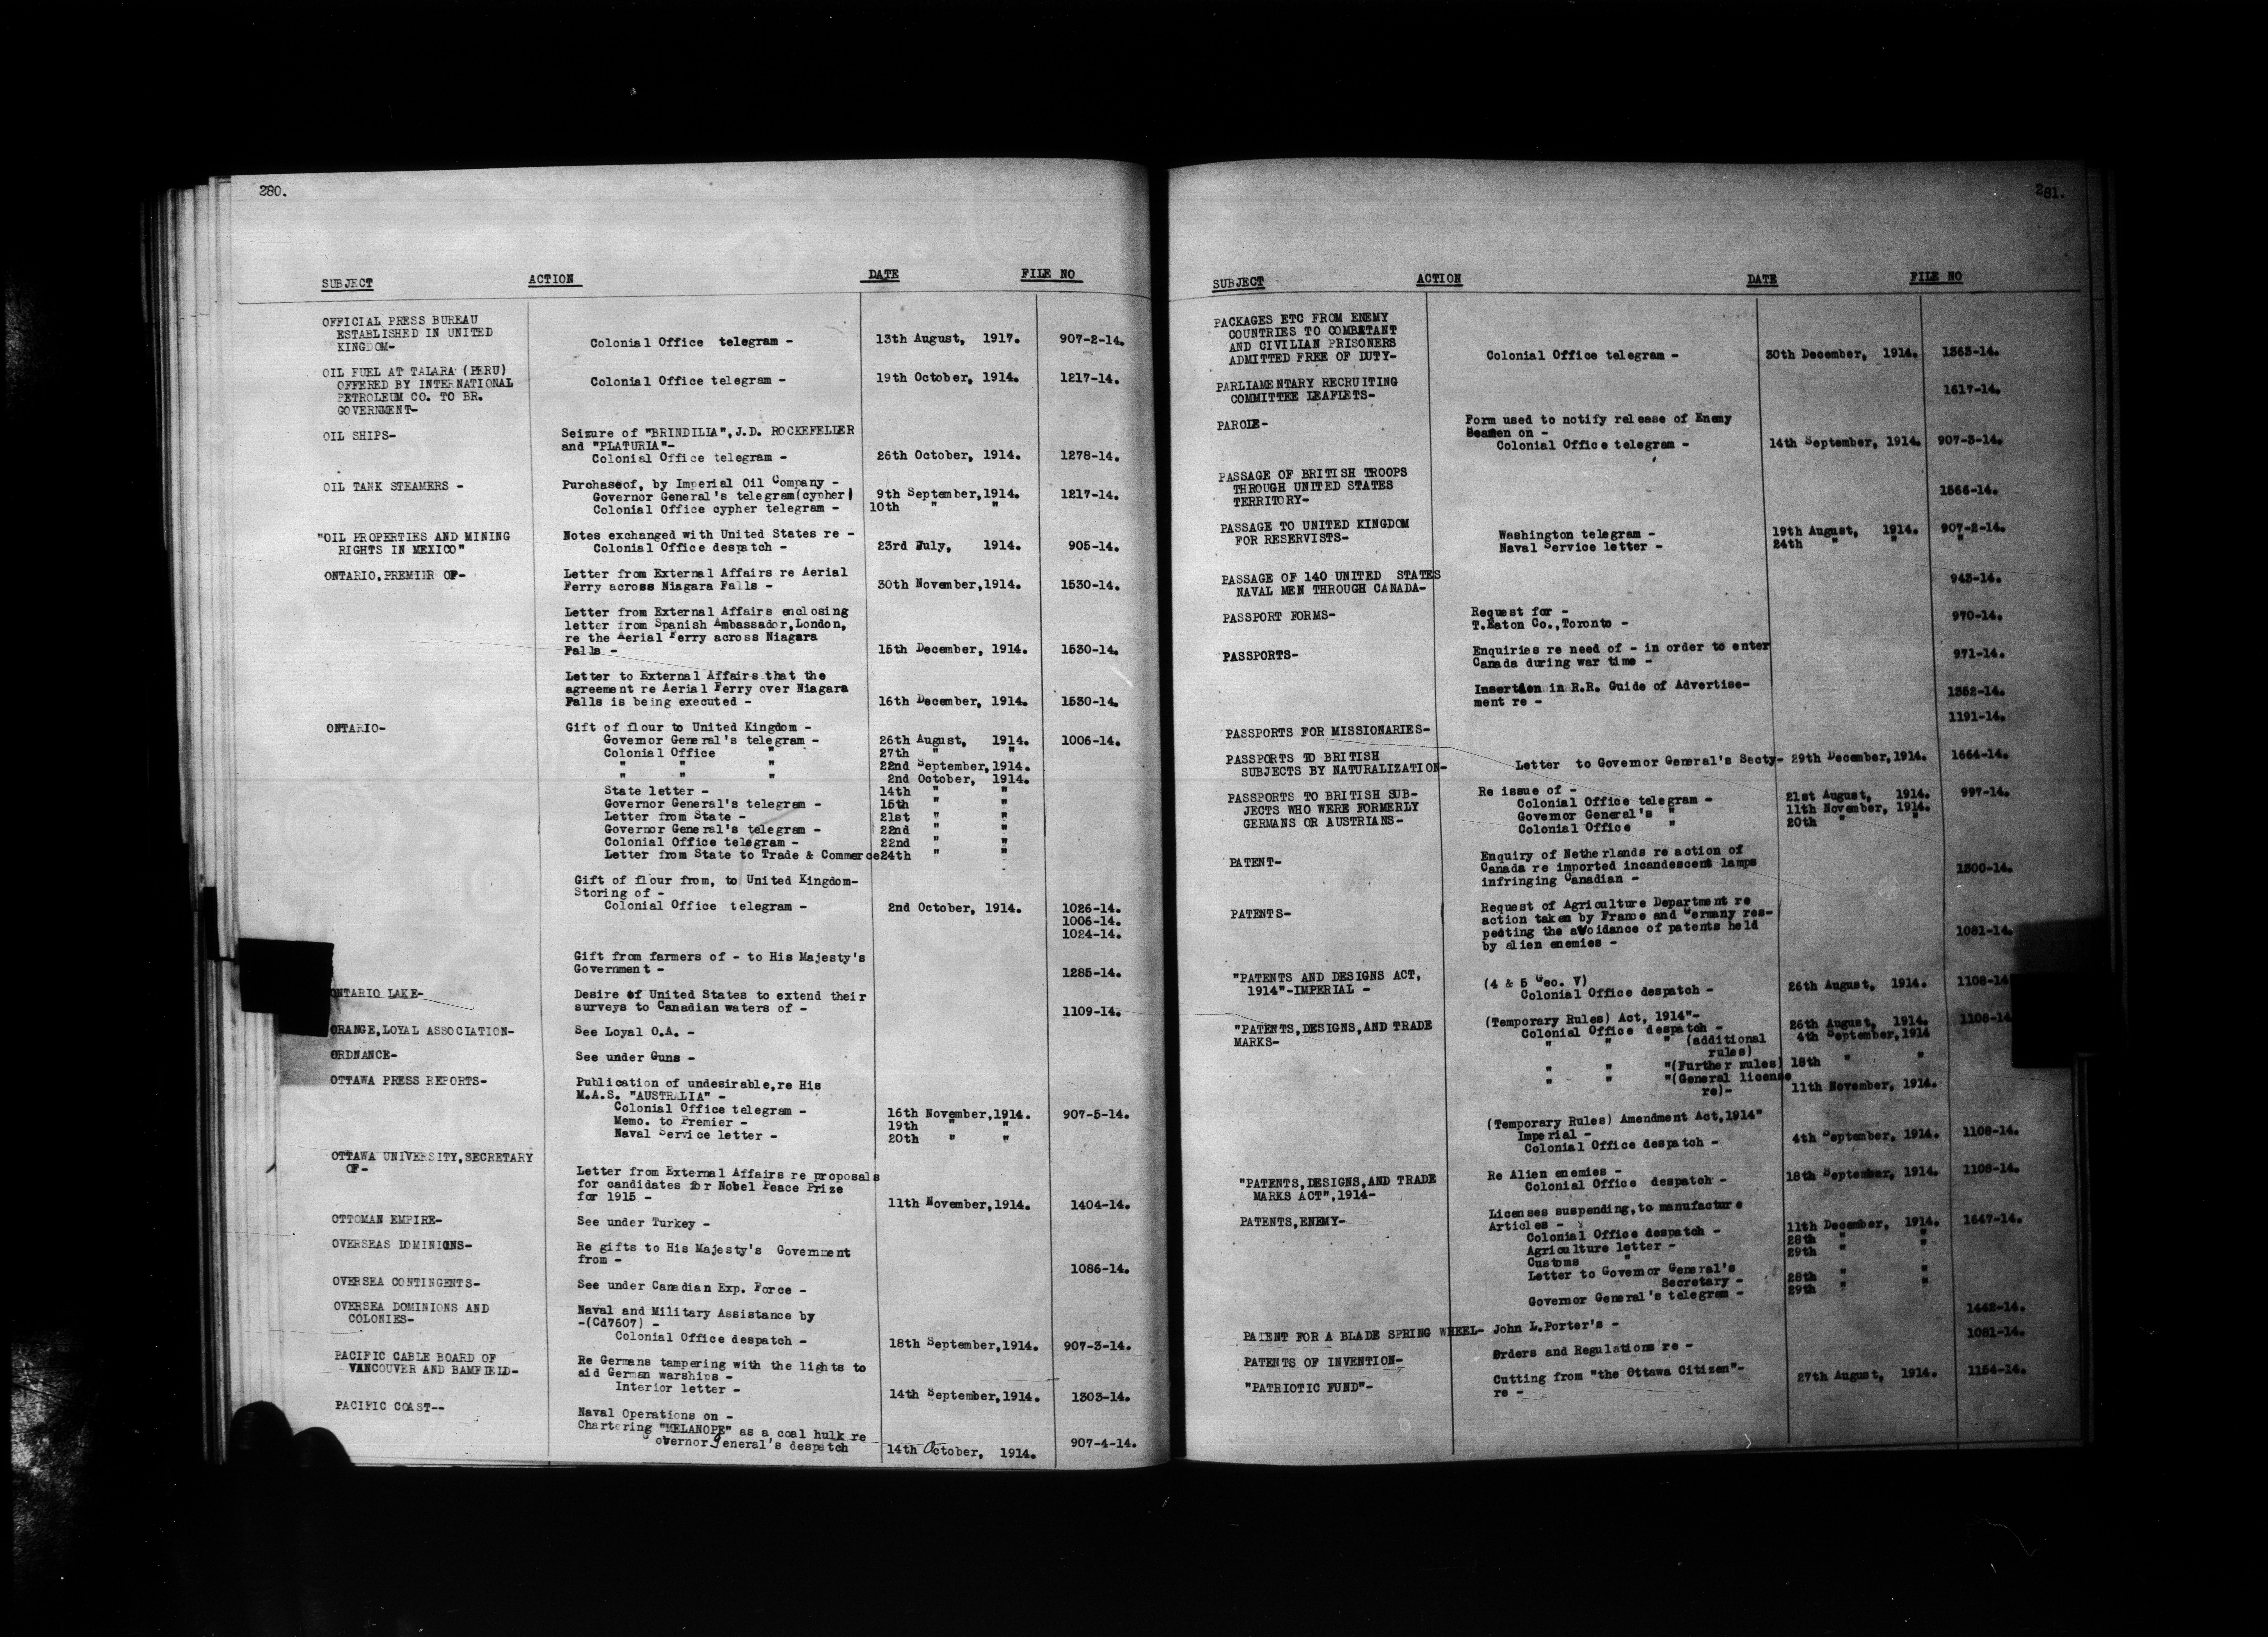 280.
SUBJECT ACTION DATE FILE NO
OFFICIAL PRESS BUREAU
ESTABLISHED IN UNITED
KINGDOM- Colonial Office telegram - 13th August, 1917. 907-2-14.
OIL FUEL AT TALARA (PERU)
OFFERED BY INTERNATIONAL Colonial Office telegram - 19th October, 1914. 1217-14.
PETROLEUM CO. TO BR.
GOVERNMENT-
OIL SHIPS- Seizure of "BRINDILIA", J.D. ROCKEFELLER
and "PLATURIA"-
Colonial Office telegram - 26th October, 1914. 1278-14.
OIL TANK STEAMERS - Purchaseof, by Imperial Oil Company -
Governor General's telegram(cypher) 9th September,1914. 1217-14.
Colonial Office cypher telegram - 10th " "
"OIL PROPERTIES AND MINING Notes exchanged with United States re -
RIGHTS IN MEXICO" Colonial Office despatch - 23rd July, 1914. 905-14.
ONTARIO,PREMIER OF- Letter from External Affairs re Aerial
Ferry across Niagara Falls - 30th November,1914. 1530-14.
Letter from External Affairs enclosing
letter from Spanish Ambassador,London,
re the Aerial Ferry across Niagara
Falls - 15th December, 1914. 1530-14.
Letter to External Affairs that the
agreement re Aerial Ferry over Niagara
Falls is being executed - 16th December, 1914. 1530-14.
ONTARIO- Gift of flour to United Kingdom -
Governor General's telegram - 26th August, 1914. 1006-14.
Colonial Office " 27th " "
" " " 22nd September,1914.
" " " 2nd October, 1914.
State letter - 14th " "
Governor General's telegram - 15th " "
Letter from State - 21st " "
Governor General's telegram - 22nd " "
Colonial Office telegram - 22nd " "
Letter from State to Trade & Commerce24th " "
Gift of flour from, to United Kingdom-
Storing of -
Colonial Office telegram - 2nd October, 1914. 1026-14.
1006-14.
1024-14.
Gift from farmers of - to His Majesty's
Government - 1285-14.
ONTARIO LAKE- Desire of United States to extend their
surveys to Canadian waters of - 1109-14.
ORANGE,LOYAL ASSOCIATION- See Loyal O.A. -
ORDNANCE- See under Guns -
OTTAWA PRESS REPORTS- Publication of undesirable,re His
M.A.S. "AUSTRALIA" -
Colonial Office telegram - 16th November,1914. 907-5-14.
Memo. to Premier - 19th " "
Naval Service letter - 20th " "
OTTAWA UNIVERSITY,SECRETARY
OF- Letter from External Affairs re proposals
for candidates for Nobel Peace Prize
for 1915 - 11th November,1914. 1404-14.
OTTOMAN EMPIRE- See under Turkey -
OVERSEAS DOMINIONS- Re gifts to His Majesty's Government
from - 1086-14.
OVERSEA CONTINGENTS- See under Canadian Exp. Force -
OVERSEA DOMINIONS AND Naval and Military Assistance by
COLONIES- -(Cd7607) -
Colonial Office despatch - 18th September,1914. 907-3-14.
PACIFIC CABLE BOARD OF Re Germans tampering with the lights to
VANCOUVER AND BAMFIELD- aid German warships -
Interior letter - 14th September,1914. 1303-14.
PACIFIC COAST-- Naval Operations on -
Chartering "MELANOPE" as a coal hulk re
Governor General's despatch 14th October, 1914. 907-4-14.
281.
SUBJECT ACTION DATE FILE NO
PACKAGES ETC FROM ENEMY
COUNTRIES TO COMBATANT
AND CIVILIAN PRISONERS
ADMITTED FREE OF DUTY- Colonial Office telegram - 30th December, 1914. 1363-14.
PARLIAMENTARY RECRUITING
COMMITTEE LEAFLETS- 1617-14.
PAROLE- Form used to notify release of Enemy
Seamen on -
Colonial Office telegram - 14th September, 1914. 907-3-14.
PASSAGE OF BRITISH TROOPS
THROUGH UNITED STATES
TERRITORY- 1566-14.
PASSAGE TO UNITED KINGDOM
FOR RESERVISTS- Washington telegram - 19th August, 1914. 907-2-14.
Naval Service letter - 24th " " "
PASSAGE OF 140 UNITED STATES
NAVAL MEN THROUGH CANADA- 943-14.
PASSPORT FORMS- Request for -
T.Eaton Co.,Toronto - 970-14.
PASSPORTS- Enquiries re need of - in order to enter
Canada during war time - 971-14.
Insertion in R.R. Guide of Advertise-
ment re - 1352-14.
PASSPORTS FOR MISSIONARIES- 1191-14.
PASSPORTS TO BRITISH
SUBJECTS BY NATURALIZATION- Letter to Governor General's Secty- 29th December,1914. 1664-14.
PASSPORTS TO BRITISH SUB- Re issue of - 997-14.
JECTS WHO WERE FORMERLY Colonial Office telegram - 21st August, 1914.
GERMANS OR AUSTRIANS- Governor General's " 11th November, 1914.
Colonial Office " 20th " "
PATENT- Enquiry of Netherlands re action of
Canada re imported incandescent lamps
infringing Canadian - 1300-14.
PATENTS- Request of Agriculture Department re
action taken by France and Germany res-
pecting the avoidance of patents held
by alien enemies - 1081-14.
"PATENTS AND DESIGNS ACT, (4 & 5 Geo. V)
1914"-IMPERIAL - Colonial Office despatch - 26th August, 1914. 1108-14
"PATENTS,DESIGNS,AND TRADE (Temporary Rules) Act, 1914"-
MARKS- Colonial Office despatch - 26th August, 1914. 1108-14
" " " (additional 4th September,1914
rules)
" " "(Further rules) 18th " "
" " "(General license
re)- 11th November, 1914.
(Temporary Rules) Amendment Act,1914"
Imperial -
Colonial Office despatch - 4th September, 1914. 1108-14.
"PATENTS,DESIGNS,AND TRADE Re Alien enemies -
MARKS ACT",1914- Colonial Office despatch - 18th September, 1914. 1108-14.
PATENTS,ENEMY- Licenses suspending,to manufacture
Articles -
Colonial Office despatch - 11th December, 1914. 1647-14.
Agriculture letter - 28th " "
Customs " 29th "
Letter to Governor General's
Secretary - 28th " "
Governor General's telegram - 29th " "
PATENT FOR A BLADE SPRING WHEEL- John L.Porter's - 1442-14.
PATENTS OF INVENTION- Orders and Regulations re - 1081-14.
"PATRIOTIC FUND"- Cutting from "the Ottawa Citizen"-
re - 27th August, 1914. 1154-14.